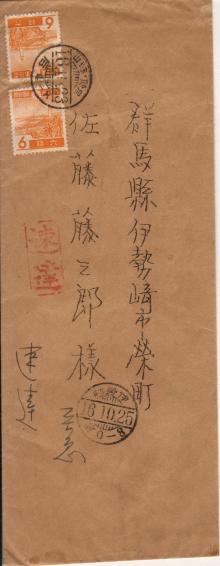 群馬縣伊勢崎市榮町
佐藤藤三郎様
速達
速達
至急
6
6
16.10.25
0-8